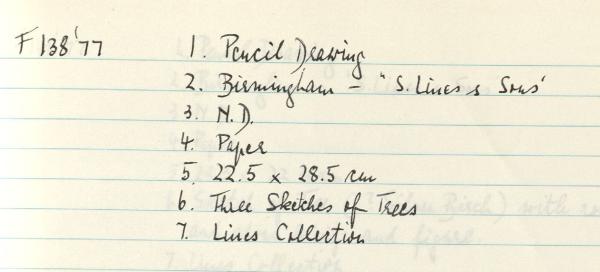 F138'77 1. Pencil Drawing
2. Birmingham - "S. Lines & Sons"
3. N.D.
4. Paper
5. 22.5 x 28.5 cm
6. Three Sketches of Trees
7. Lines Collection